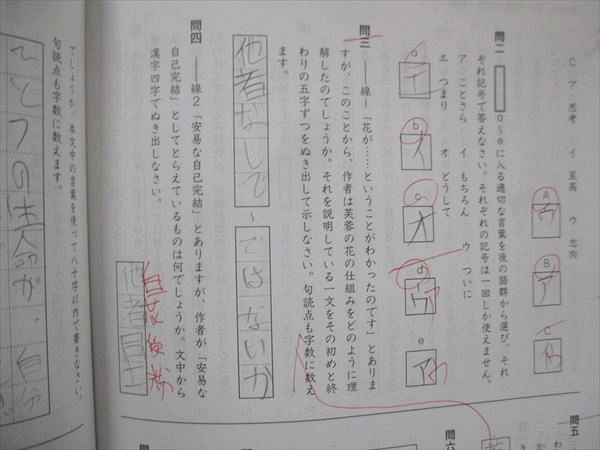 C ア 思考 イ 至高 ウ 志向
A ウ
B ア
C イ
問二 a～eに入る適切な言葉を後の語群から選び、それ
ぞれ記号で答えなさい。それぞれの記号は一回しか使えません。
ア ことさら イ もちろん ウ ついに
エ つまり オ どうして
a イ
b エ
c オ
d ウ
e ア
問三 ――線1「花が……ということがわかったのです」とありま
すが、このことから、作者は芙蓉の花の仕組みをどのように理
解したのでしょうか。それを説明している一文をその初めと終
わりの五字ずつをぬき出して示しなさい。句読点も字数に数え
ます。
他者なしで～ではないか
問四 ――線2「安易な自己完結」とありますが、作者が「安易な
自己完結」としてとらえているものは何でしょうか。文中から
漢字四字でぬき出しなさい。
自家受粉
でしょうか。本文中の言葉を使って八十字以内で書きなさい。
句読点も字数に数えます。
ひとつの生命が、自分
問五
問六